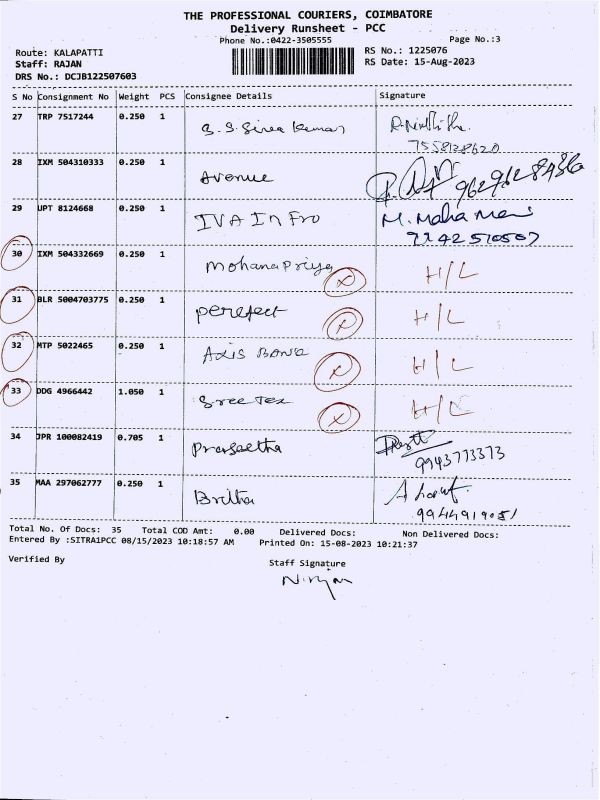 THE PROFESSIONAL COURIERS, COIMBATORE
Delivery Runsheet - PCC
Phone No.:0422-3505555
Page No.:3
Route: KALAPATTI
RS No.: 1225076
Staff: RAJAN
RS Date: 15-Aug-2023
DRS No.: DCJB122507603
S No Consignment No Weight PCS Consignee Details Signature
27 TRP 7517244 0.250 1 S.S. Siva Kumar
7558128620
28 IXM 504310333 0.250 1 Avenue 9629628486
29 UPT 8124668 0.250 1 IVA InFro M. Maha Mani
30 IXM 504332669 0.250 1 Mohanapriya H/L
31 BLR 5004703775 0.250 1 perefect H/L
32 MTP 5022465 0.250 1 Axis Bank H/L
33 DDG 4966442 1.050 1 Sree Tex H/L
34 JPR 100082419 0.705 1
9943773373
35 MAA 297062777 0.250 1
9944919051
Total No. Of Docs: 35 Total COD Amt: 0.00 Delivered Docs: Non Delivered Docs:
Entered By :SITRA1PCC 08/15/2023 10:18:57 AM Printed On: 15-08-2023 10:21:37
Verified By
Staff Signature